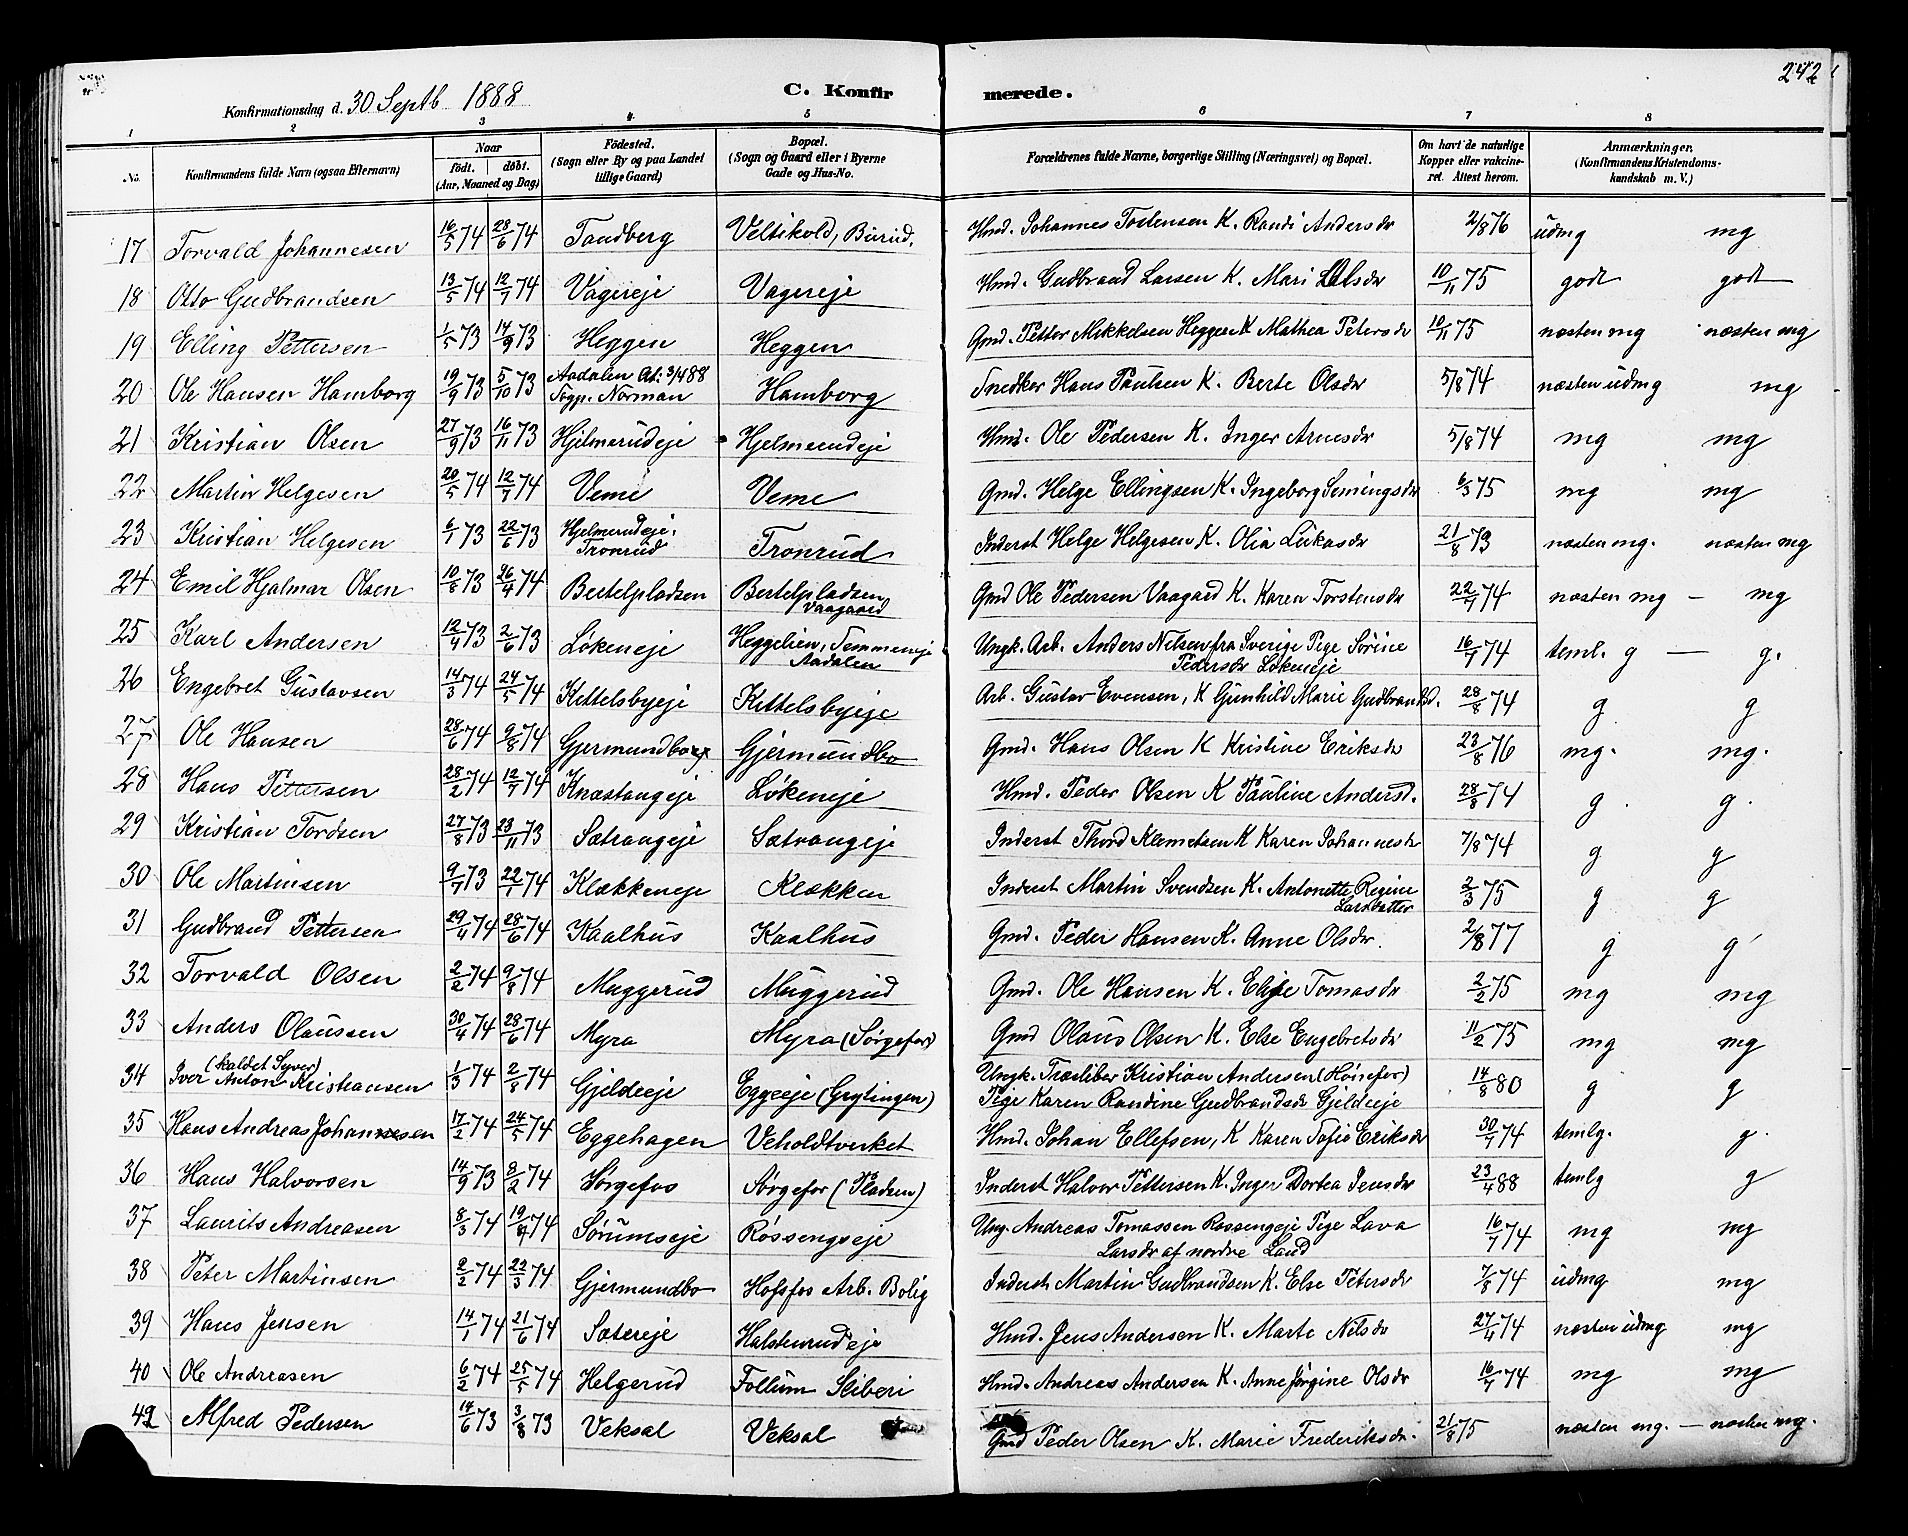 242
Konfirmationsdag d. 30 Septb. 1888
C. Konfirmerede.
1 2 3 4. 5 6 7 8
No. Konfirmandens fulde Navn (ogsaa Efternavn) Naar født. døbt. (Aar, Maaned og Dag) Födested. (Sogn eller By og paa Landet tillige Gaard) Bopæl. (Sogn og Gaard eller i Byerne Gade og Hus-No. Forældrenes fulde Navne, borgerlige Stilling (Næringsvei) og Bopæl. Om havt de naturlige Kopper eller vakcineret. Attest herom. Anmærkninger. (Konfirmandens Kristendomskundskab m. V.)
17 Torvald Johannesen 16/5 74 28/6 74 Tandberg Veltikold, Burud. Hmd. Johannes Tostensen K. Randi Andersdr 2/8 76 udmg mg
18 Otto Gudbrandsen 13/5 74 12/7 74 Vagereje Vagereje Hmd. Gudbrand Larsen K. Mari Olsdr 10/11 75 godt godt
19 Elling Pettersen 1/5 73 14/9 73 Heggen Heggen Gmd. Petter Mikkelsen Heggen K Mathea Petersdr 10/11 75 næsten mg næsten mg
20 Ole Hansen Hamborg 19/9 73 5/10 73 Aadalen At: 3/4 88 Sogp. Norman Hamborg Snedker Hans Paulsen K. Berte Olsdr 5/8 74 næsten udmg mg
21 Kristian Olsen 27/9 73 16/11 73 Hjelmerudeje Hjelmerudeje Hmd. Ole Pedersen K. Inger Arnesdr 5/8 74 mg mg
22 Martin Helgesen 20/5 74 12/7 74 Veme Veme Gmd. Helge Ellingsen K. Ingeborg Semingsdr 6/3 75 mg mg
23 Kristian Helgesen 6/1 73 22/6 73 Hjelmerudeje. Tronrud Tronrud Inderst Helge Helgesen K. Olia Lukasdr 21/8 73 næsten mg. næsten mg
24 Emil Hjalmar Olsen 10/8 73 26/4 74 Bertelpladsen Bertelpladsen Vaagaard Gmd Ole Pedersen Vaagaard K. Karen Torstensdr 22/7 74 næsten mg — mg
25 Karl Andersen 12/4 73 2/6 73 Løkeneje Heggelien, Semmeneje Aadalen Ungk. Arb. Anders Nilsen fra Sverige Pige Sørine Pedersdr Løkeneje 16/7 74 teml. g — g.
26 Engebret Gustavsen 14/3 74 24/5 74 Kittelsbyeje Kittelsbyeje Arb. Gustav Evensen, K Gunhild Marie Gudbrandsd. 28/8 74 g g
27 Ole Hansen 28/6 74 9/8 74 Gjermundbo Gjermundbo Gmd. Hans Olsen K Kristine Eriksdr 23/8 76 mg. mg.
28 Hans Pettersen 28/2 74 12/7 74 Knæstangeje Løkeneje Hmd. Peder Olsen K Pauline Andersd. 28/8 74 g. g.
29 Kristian Tordsen 27/8 73 23/11 73 Sætrangeje Sætrangeje Inderst Thord Klemetsen K Karen Johannesdr 7/8 74 g g
30 Ole Martinsen 9/7 73 22/1 74 Klækkeneje Klækken Inderst Martin Svendsen K. Antonette Regine Larsdatter 2/3 75 g g
31 Gudbrand Pettersen 29/4 74 28/6 74 Kaalhus Kaalhus Gmd. Peder Hansen K. Anne Olsdr. 2/8 77 g g
32 Torvald Olsen 2/2 74 9/8 74 Muggerud Muggerud Gmd. Ole Hansen K. Elise Tomasdr 2/2 75 mg mg
33 Anders Olaussen 30/4 74 28/6 74 Myra Myra (Sørgefos) Gmd Olaus Olsen K. Else Engebretsdr 11/2 75 mg mg
34 Iver (kaldet Syver) Anton Kristiansen 1/3 74 2/8 74 Gjeldeeje Eggeeje (Grytingen) Ungk. Træsliber Kristian Andersen (Hønefos) Pige Karen Randine Gudbrandsdr Gjeldeeje 14/8 80 g g
35 Hans Andreas Johannesen 17/2 74 24/5 74 Eggehagen Veholdtverket Hmd. Johan Ellefsen, K Karen Sofie Eriksdr 30/7 74 temlg. g.
36 Hans Halvorsen 14/9 73 8/2 74 Sørgefos Sørgefos (Pladsen) Inderst Halvor Pettersen K. Inger Dortea Jensdr 23/4 88 temlg g
37 Laurits Andreasen 8/3 74 19/4 74 Sørumseje Røssengseje Ung. Andreas Tomassen Røssengeje Pige Lava Larsdr af nordre Land 16/7 74 mg mg
38 Peter Martinsen 2/2 74 22/3 74 Gjermundbo Hofsfos Arb. Bolig Inderst Martin Gudbrandsen K. Else Petersdr 7/8 74 udmg mg
39 Hans Jensen 14/1 74 21/6 74 Sætereje Halstenrudeje Hmd. Jens Andersen K. Marte Nilsdr 27/4 74 næsten udmg mg
40 Ole Andreasen 6/2 74 25/5 74 Helgerud Follum Sliberi Hmd. Andreas Andersen K. Anne Jørgine Olsdr 16/7 74 mg mg
42 Alfred Pedersen 14/6 73 3/8 73 Veksal Veksal Gmd Peder Olsen K. Marie Frederiksdr. 21/8 75 næsten mg. — næsten mg.